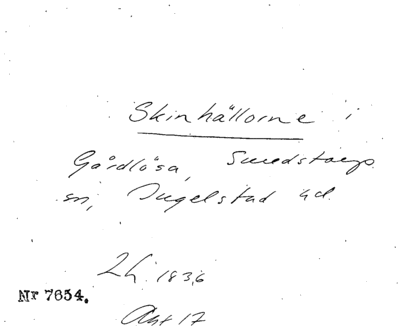 Skinhållorne i
Gårdlösa, Smedstorps
sn, Ingelstad hd.
2 h. 1836
Nr 7654.
Akt 17